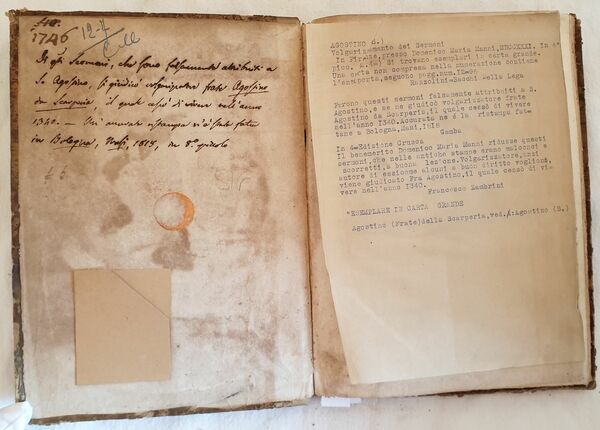 1746
12-4
Coll
Di qti Sermoni, che sono falsamente attribuiti a
S. Agostino, si giudicò volgarizzatore frate Agostino
da Scarperia, il quale cessò di vivere nell'anno
1340. — Un' accurata ristampa si è stata fatta
in Bologna, 1818, in 8º piccolo
AGOSTINO d.)
Volgarizzamento dei Sermoni
In Firenze, presso Domenico Maria Manni, MDCCXXXI, in 4°
picc. Si trovano esemplari in carta grande.
Una carta non compresa nella numerazione contiene
l'errata, seguono pagg.num.12-96
Razzolini-Bacchi Della Lega
Furono questi sermoni falsamente attribuiti a S.
Agostino, e se ne giudicò volgarizzatore frate
Agostino da Scarperia, il quale cessò di vivere
nell'anno 1340. Accurata ne è la ristampa fat-
tane a Bologna, Masi, 1818
Gamba
In 4° Edizione Crusca
Il benemerito Domenico Maria Manni ridusse questi
sermoni, che nelle antiche stampe erano malconci e
scorretti, a buona lezione. Volgarizzatore, anzi
autore di essi come alcuni a buon diritto vogliono,
viene giudicato Fra Agostino, il quale cessò di vi-
vere nell'anno 1340.
Francesco Zambrini
*ESEMPLARE IN CARTA GRANDE
Agostino (Frate) della Scarperia, ved. A: Agostino (S.)